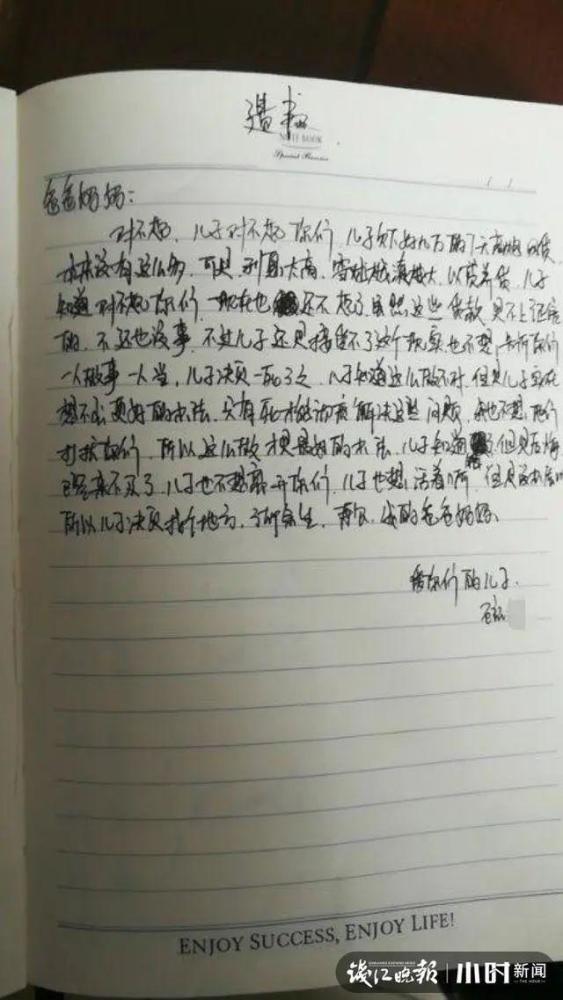 遗书
NOTE BOOK
Special Business
爸爸妈妈：
对不起，儿子对不起你们，儿子欠下好几万的7天高炮网贷
本来没有这么多，可是利息太高，雪球越滚越大，以贷养贷，儿子
知道对不起你们，现在也还不起了虽然这些贷款是不上征信
的，不还也没事，不过儿子还是接受不了这个现实也不想
一人做事一人当，儿子决定一死了之，儿子知道这么做不对，但是儿子实在
想不出更好的办法，只有死才能彻底解决这些问题，我也不想他们
打扰你们，所以这么做才是最好的办法，儿子知道错了但是后悔
已经来不及了，儿子也不想离开你们，儿子也想活着啊，但是没办法
所以儿子决定找个地方，了却余生，再见，我的爸爸妈妈、
爱你们的儿子.
ENJOY SUCCESS, ENJOY LIFE!
钱江晚报 小时新闻